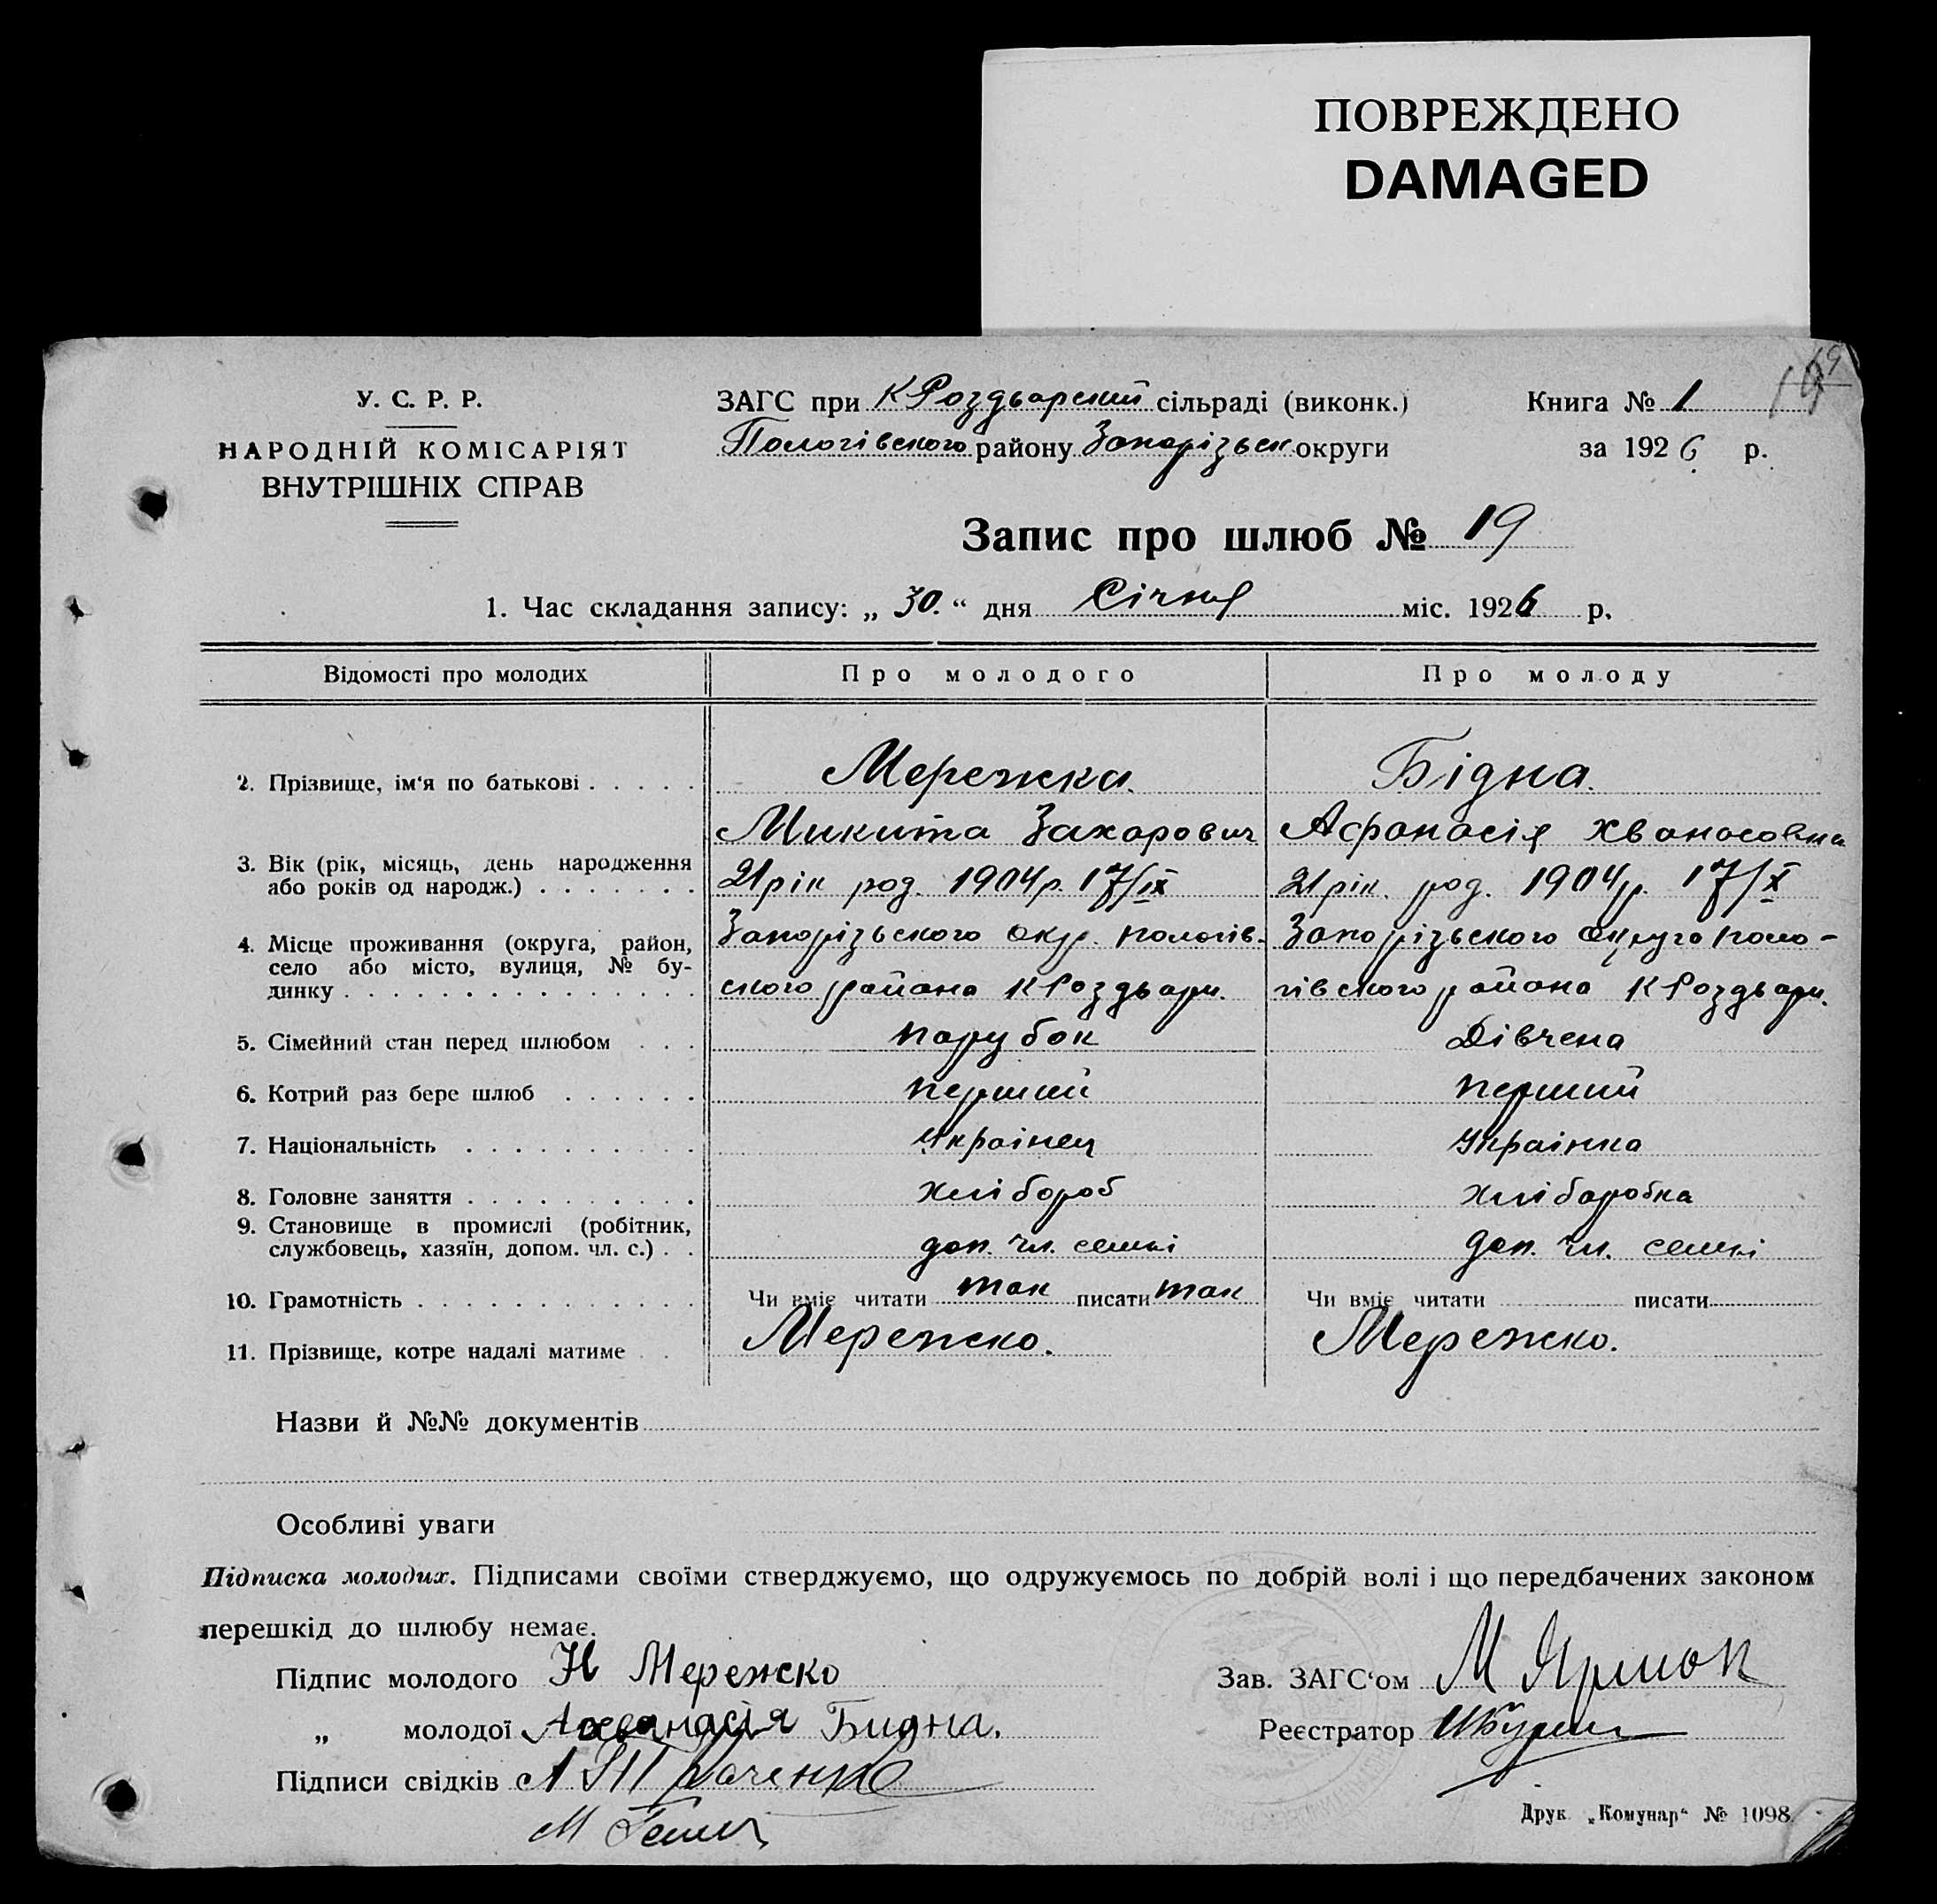 ПОВРЕЖДЕНО
DAMAGED
У. С. Р. Р.
НАРОДНІЙ КОМІСАРІЯТ
ВНУТРІШНІХ СПРАВ
ЗАГС при К Роздьорский сільраді (виконк.)
Пологівского району Запорізьк округи
Книга № 1
за 1926 р.
Запис про шлюб № 19
1. Час складання запису: „ 30. “ дня Січня міс. 1926 р.
Відомості про молодих Про молодого Про молоду
2. Прізвище, ім'я по батькові . . . . . Мережка. Бідна.
Микита Захарович Афанасія Хванасовна
3. Вік (рік, місяць, день народження
або років од народж.) . . . . . . . 21 рік род. 1904 р. 17/IX 21 рік. род. 1904 р. 17/X
4. Місце проживання (округа, район,
село або місто, вулиця, № бу-
динку . . . . . . . . . . . . . . .
Запорізьского окр. пологів-
ского района К Роздьори.
Запорізьского округа поло-
гівского района К Роздьори.
5. Сімейний стан перед шлюбом . . . парубок Дівчена
6. Котрий раз бере шлюб . . . . . . перший перший
7. Національність . . . . . . . . . . Украінец Украінка
8. Головне заняття . . . . . . . . . . хлібороб хліборобка
9. Становище в промислі (робітник,
службовець, хазяїн, допом. чл. с.) . . доп. чл. семьі доп. чл. семьі
10. Грамотність . . . . . . . . . . . . Чи вміє читати так писати так Чи вміє читати писати
11. Прізвище, котре надалі матиме . . Мережко. Мережко.
Назви й №№ документів
Особливі уваги
Підписка молодих. Підписами своїми стверджуємо, що одружуємось по добрій волі і що передбачених законом
перешкід до шлюбу немає.
Підпис молодого Н Мережко
„ молодої Ахванасія Бидна.
Підписи свідків
Зав. ЗАГС'ом М Ярмок
Реєстратор
Друк. „Комунар“ № 1098.